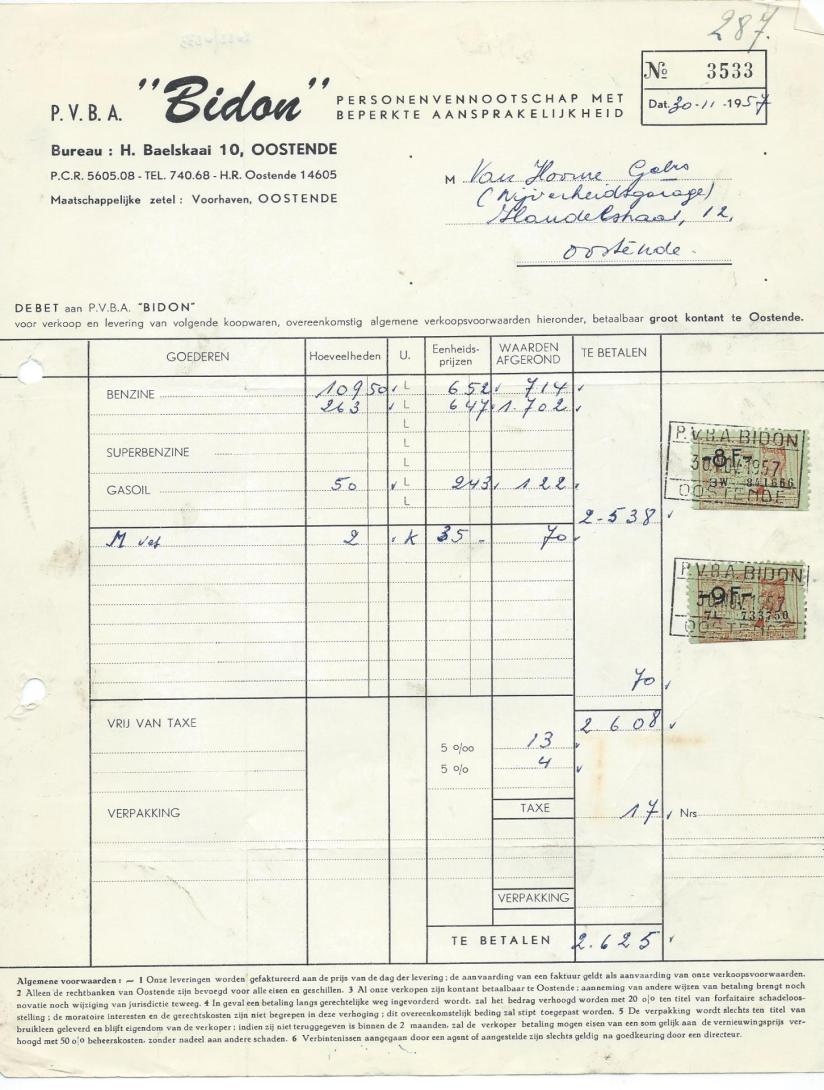 287.
P.V.B.A. "Bidon" PERSONENVENNOOTSCHAP MET
BEPERKTE AANSPRAKELIJKHEID
No 3533
Dat. 30-11-1957
Bureau : H. Baelskaai 10, OOSTENDE
P.C.R. 5605.08 - TEL. 740.68 - H.R. Oostende 14605
Maatschappelijke zetel : Voorhaven, OOSTENDE
M Van Hoorne Gebrs
(Nijverheidsgarage)
Handelstraat, 12,
Oostende.
DEBET aan P.V.B.A. "BIDON"
voor verkoop en levering van volgende koopwaren, overeenkomstig algemene verkoopsvoorwaarden hieronder, betaalbaar groot kontant te Oostende.
GOEDEREN Hoeveelheden U. Eenheids-prijzen WAARDEN AFGEROND TE BETALEN
BENZINE 109 50 L 652 714
263 L 647 1.702
L
SUPERBENZINE L
L
GASOIL 50 L 243 122
L
2.538
P.V.B.A. BIDON
-8F-
30 NOV 1957
OOSTENDE
M vet 2 K 35 - 70
P.V.B.A. BIDON
-9F-
30 NOV 1957
7L 733750
OOSTENDE
70
VRIJ VAN TAXE 2.608
5 o/oo 13
5 o/o 4
VERPAKKING TAXE 17 Nrs
VERPAKKING
TE BETALEN 2.625
Algemene voorwaarden : — 1 Onze leveringen worden gefaktureerd aan de prijs van de dag der levering ; de aanvaarding van een faktuur geldt als aanvaarding van onze verkoopsvoorwaarden.
2 Alleen de rechtbanken van Oostende zijn bevoegd voor alle eisen en geschillen. 3 Al onze verkopen zijn kontant betaalbaar te Oostende ; aanneming van andere wijzen van betaling brengt noch
novatie noch wijziging van jurisdictie teweeg. 4 In geval een betaling langs gerechtelijke weg ingevorderd wordt, zal het bedrag verhoogd worden met 20 o/o ten titel van forfaitaire schadeloos-
stelling ; de moratoire interesten en de gerechtskosten zijn niet begrepen in deze verhoging ; dit overeenkomstelijk beding zal stipt toegepast worden. 5 De verpakking wordt slechts ten titel van
bruikleen geleverd en blijft eigendom van de verkoper ; indien zij niet teruggegeven is binnen de 2 maanden, zal de verkoper betaling mogen eisen van een som gelijk aan de vernieuwingsprijs ver-
hoogd met 50 o/o beheerskosten, zonder nadeel aan andere schaden. 6 Verbintenissen aangegaan door een agent of aangestelde zijn slechts geldig na goedkeuring door een directeur.